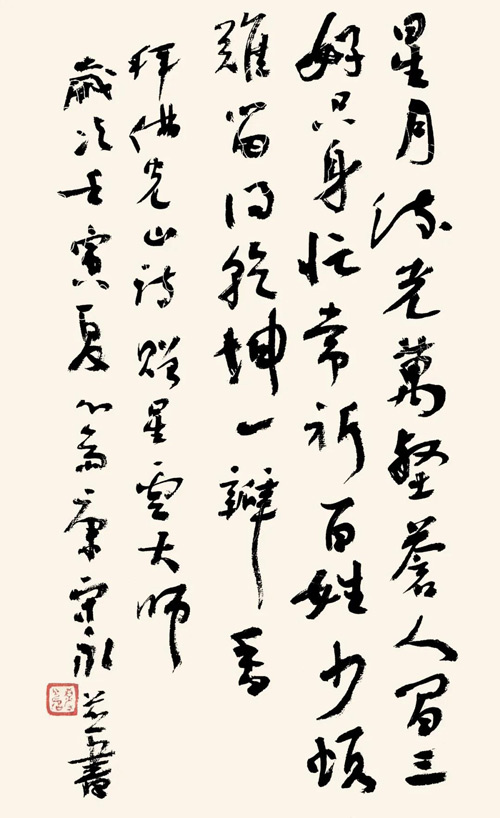 星月流光萬壑蒼人間三
好只身忙常祈百姓少煩
難留得乾坤一瓣香
拜佛光山詩贈星雲大師
歲次壬寅夏康守永並書